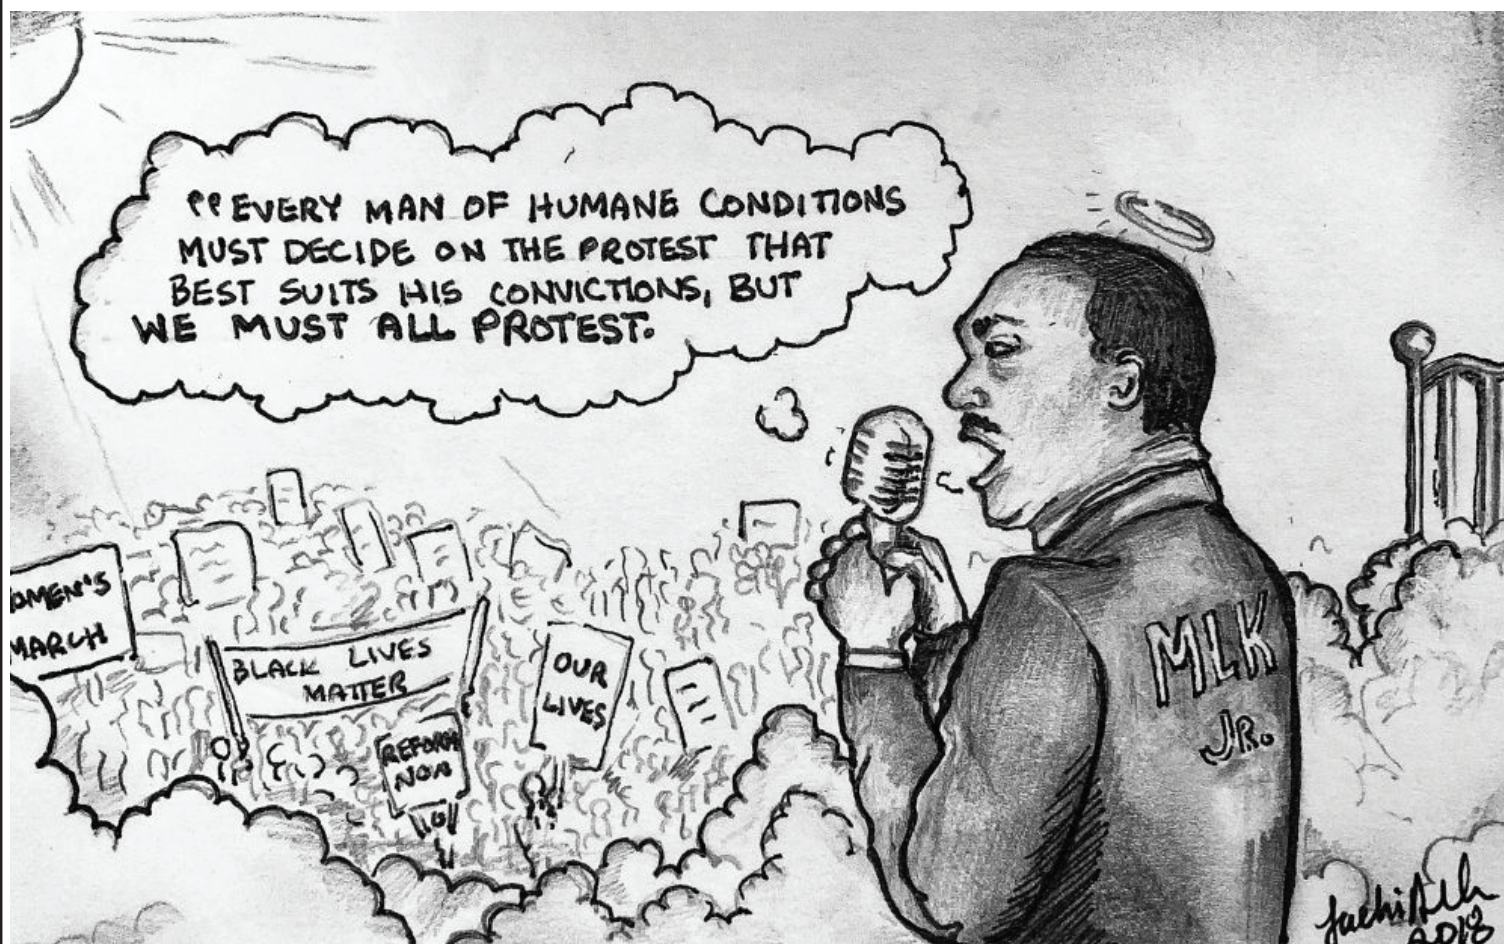 “EVERY MAN OF HUMANE CONDITIONS
MUST DECIDE ON THE PROTEST THAT
BEST SUITS HIS CONVICTIONS, BUT
WE MUST ALL PROTEST.
OMEN'S
MARCH
BLACK LIVES
MATTER
REFORM
NOW
OUR
LIVES
MLK
JR.
2018